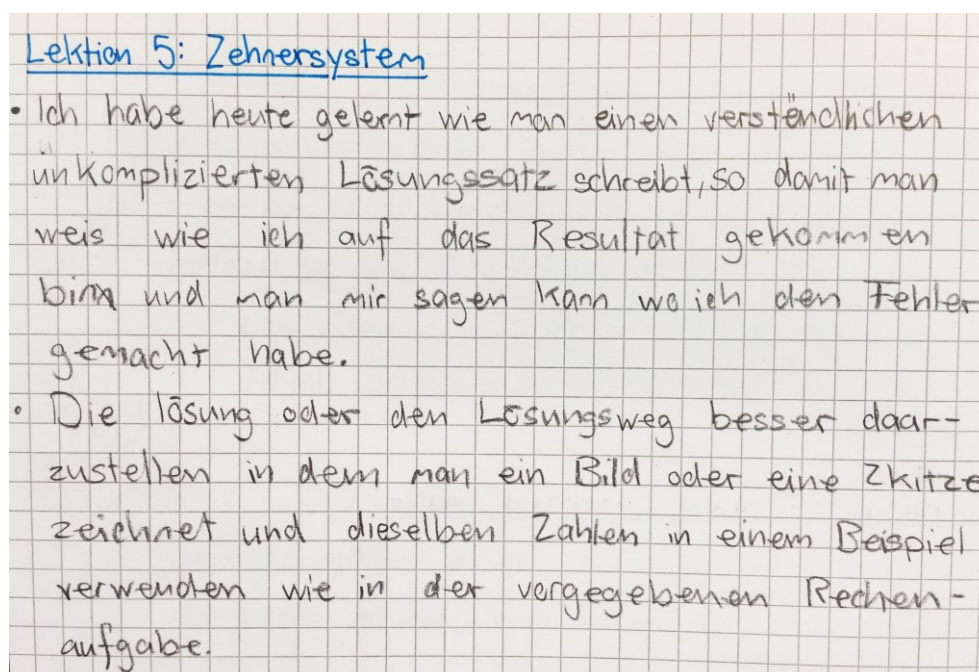 Lektion 5: Zehnersystem
• Ich habe heute gelernt wie man einen verständlichen
unkomplizierten Lösungssatz schreibt, so damit man
weis wie ich auf das Resultat gekommen
bin und man mir sagen kann wo ich den Fehler
gemacht habe.
• Die lösung oder den Lösungsweg besser daar-
zustellen in dem man ein Bild oder eine Zkitze
zeichnet und dieselben Zahlen in einem Beispiel
verwenden wie in der vorgegebenen Rechen-
aufgabe.